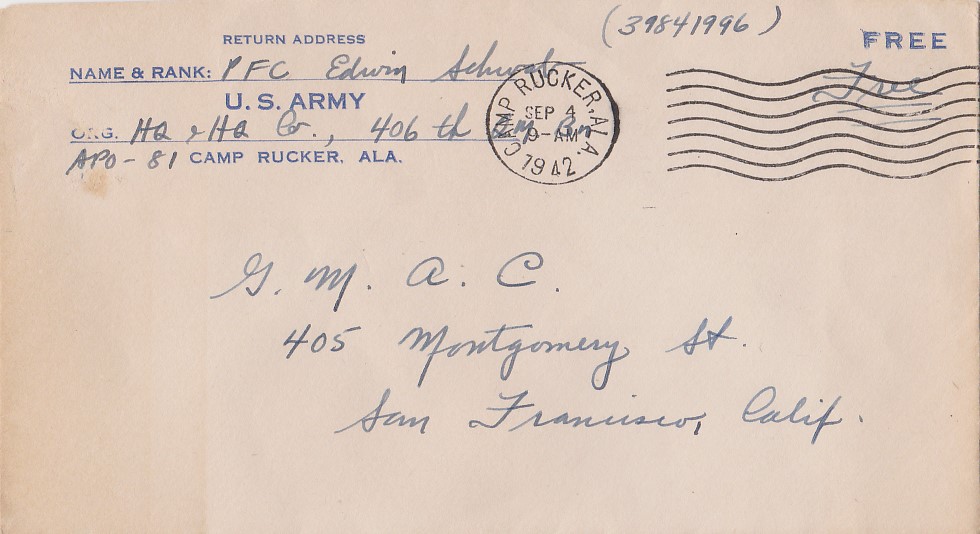 (39841996)
RETURN ADDRESS
FREE
NAME & RANK: PFC Edwin
Free
U. S. ARMY
ORG. HQ & HQ Co., 406 th
APO-81 CAMP RUCKER, ALA.
CAMP RUCKER, ALA.
SEP 4
9-AM
1942
G. M. A. C.
405 Montgomery St.
San Francisco, Calif.